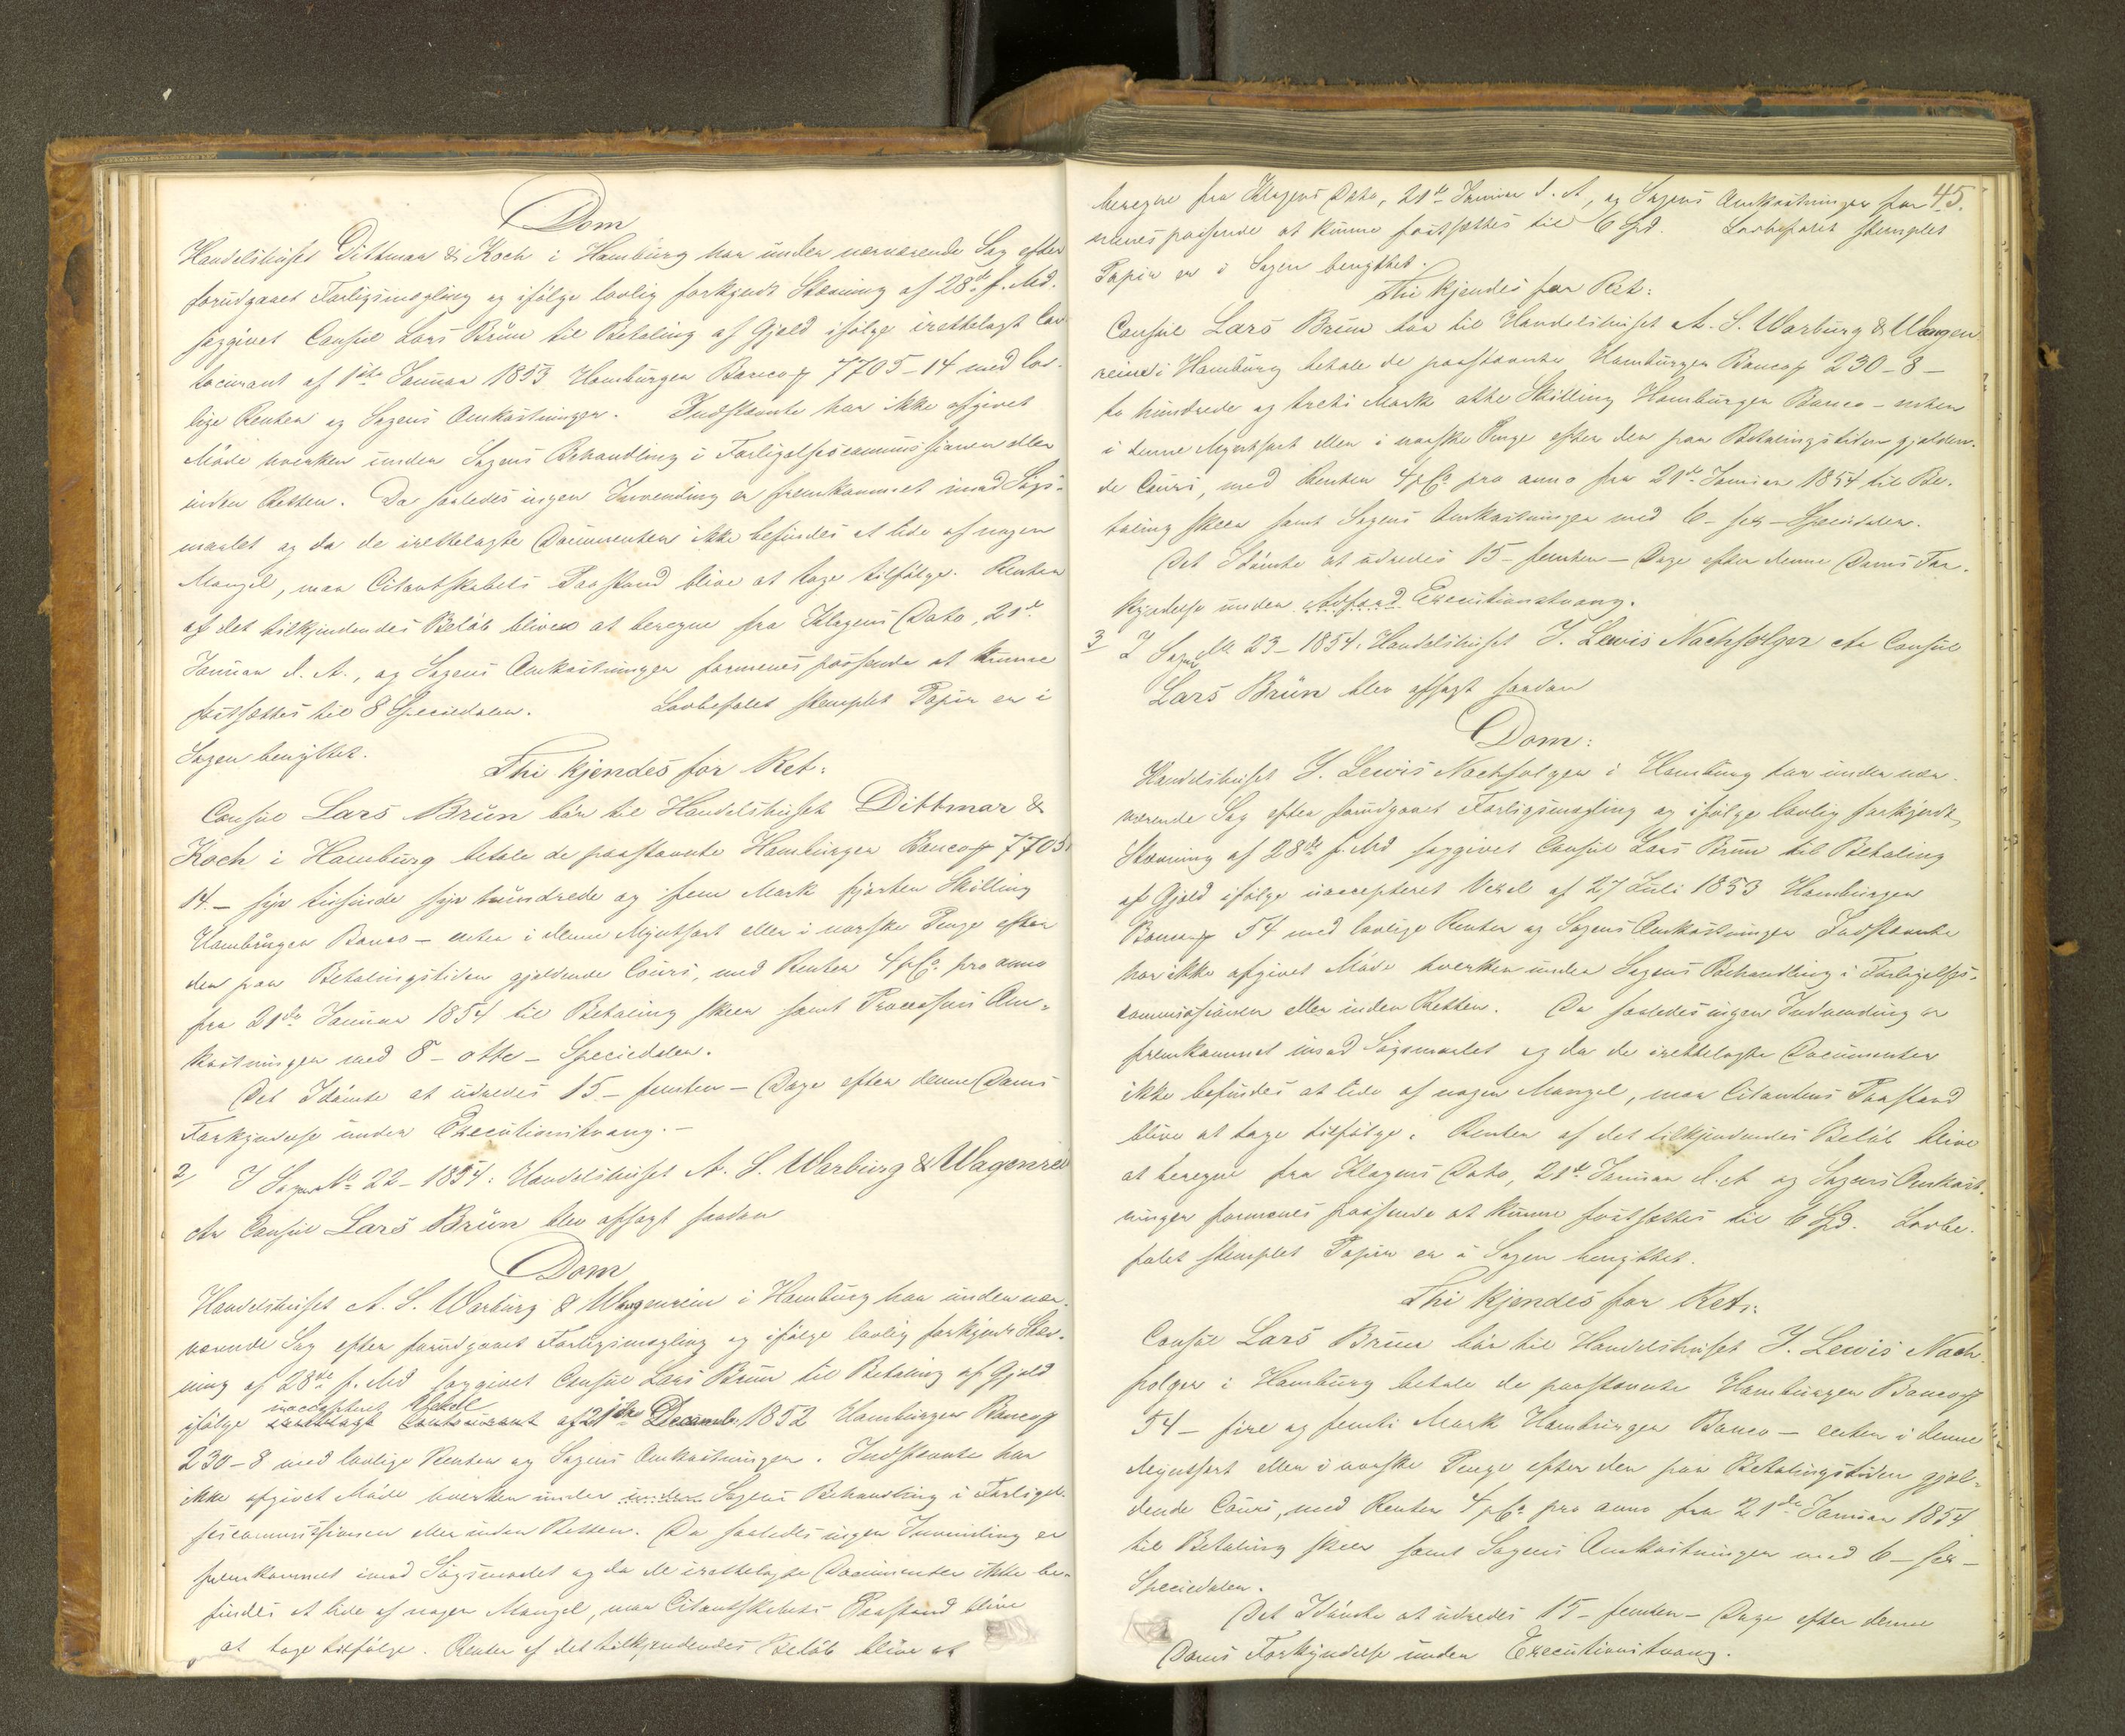 Dom
Handelshuset Dittmar & Koch i Hamburg har under nærværende Sag efter
forudgaaet Forligsmægling og ifølge lovlig forkyndt Stævning af 28de f. Md.
søgt Consul Lars Brün til Betaling af Gjeld ifølge irettelagt Con-
tocurant af 1ste Januar 1853 Hamburger Banco 7705-14 med lov-
lige Renter og Sagens Omkostninger. Indstævnte har ikke afgivet
Møde hverken under Sagens Behandling i Forligelsescommissionen eller
inden Retten. Da saaledes ingen Invending er fremkommet imod Søgs-
maalet og da de irettelagte Documenter ikke befindes at lide af nogen
Mangel, maa Citantskabets Paastand blive at tage tilfølge. Renten
af det tilkjendendes Beløb bliver at beregne fra Klagens Dato, 21de
Januar d. A., og Sagens Omkostninger formenes passende at kunne
fastsættes til 8 Speciedaler. Lovbefalet stemplet Papir er i
Sagen benyttet.
Thi kjendes for Ret:
Consul Lars Brün bør til Handelshuset Dittmar &
Koch i Hamburg betale de paastævnte Hamburger Banco 7705
14. - syv tusinde syv hundrede og fem Mark fjorten Skilling
Hamburger Banco - enten i denne Myntsort eller i norske Penge efter
den paa Betalingstiden gjeldende Cours, med Renter 4 pCt pro anno
fra 21de Januar 1854 til Betaling skeer samt Processens Om-
kostninger med 8 - otte - Speciedaler.
Det Idømte at udredes 15. - femten - Dage efter denne Doms
Forkyndelse under Executionstvang. -
2/ I Sagen No 22 - 1854: Handelshuset A. S. Warburg & Wagenrei
ctr Consul Lars Brün blev afsagt saadan
Dom
Handelshuset A. S. Warburg & Wagenrein i Hamburg har under nær-
værende Sag efter forudgaaet Forligsmægling og ifølge lovlig forkyndt Stæv-
ning af 28de f. Md sagsøgt Consul Lars Brün til Betaling af Gjeld
inaccepteret Vexel
ifølge irettelagt Contocurant af 21de December 1852 Hamburger Banco
230-8 med lovlige Renter og Sagens Omkostninger. Indstævnte har
ikke afgivet Møde hverken under under Sagens Behandling i Forligel-
sescommissionen eller inden Retten. Da saaledes ingen Invending er
fremkommet imod Søgsmaalet og da de irettelagte Documenter ikke be-
findes at lide af nogen Mangel, maa Citantskabets Paastand blive
at tage tilfølge. Renter af det tilkjendendes Beløb blive at
45.
beregne fra Klagens Dato, 21de Januar d. A, og Sagens Omkostninger for-
menes passende at kunne fastsættes til 6 Spd. Lovbefalet stemplet
Papir er i Sagen benyttet.
Thi kjendes for Ret:
Consul Lars Brün bør til Handelshuset A. S. Warburg & Wagen
rein i Hamburg betale de paastævnte Hamburger Banco 230-8-
to hundrede og treti Mark otte Skilling Hamburger Banco - enten
i denne Myntsort eller i norske Penge efter den paa Betalingstiden gjelden-
de Cours, med Renter 4 pCt pro anno fra 21de Januar 1854 til Be-
taling skeer samt Sagens Omkostninger med 6 - sex - Speciedaler.
Det Idømte at udredes 15 - femten - Dage efter denne Doms For-
kyndelse under Adfærd Executionstvang.
3 I Sagen No 23 - 1854: Handelshuset J. Lewis Nachfolger ctr Consul
Lars Brün blev afsagt saadan
Dom:
Handelshuset J. Lewis Nachfolger i Hamburg har under nær-
værende Sag efter forudgaaet Forligsmægling og ifølge lovlig forkyndt
Stævning af 28de f. Md sagsøgt Consul Lars Brün til Betaling
af Gjeld ifølge uaccepteret Vexel af 27 Juli 1853 Hamburger
Banco 54 med lovlige Renter og Sagens Omkostninger Indstævnte
har ikke afgivet Møde hverken under Sagens Behandling i Forligelses-
commissionen eller inden Retten. Da saaledes ingen Indvending er
fremkommet imod Søgsmaalet og da de irettelagte Documenter
ikke befindes at lide af nogen Mangel, maa Citantens Paastand
blive at tage tilfølge. Renten af det tilkjendendes Beløb blive
at beregne fra Klagens Dato, 21de Januar d. A og Sagens Omkost-
ninger formenes passende at kunne fastsættes til 6 Spd. Lovbe-
falet stemplet Papir er i Sagen benyttet.
Thi kjendes for Ret:
Consul Lars Brün bør til Handelshuset J. Lewis Nach-
folger i Hamburg betale de paastævnte Hamburger Banco
54 - fire og femti Mark Hamburger Banco - enten i denne
Myntsort eller i norske Penge efter den paa Betalingstiden gjel-
dende Cours, med Renter 4 pCt pro anno fra 21de Januar 1854
til Betaling skeer samt Sagens Omkostninger med 6 - sex -
Speciedaler.
Det Idømte at udredes 15 - femten - Dage efter denne
Doms Forkyndelse under Executionstvang.